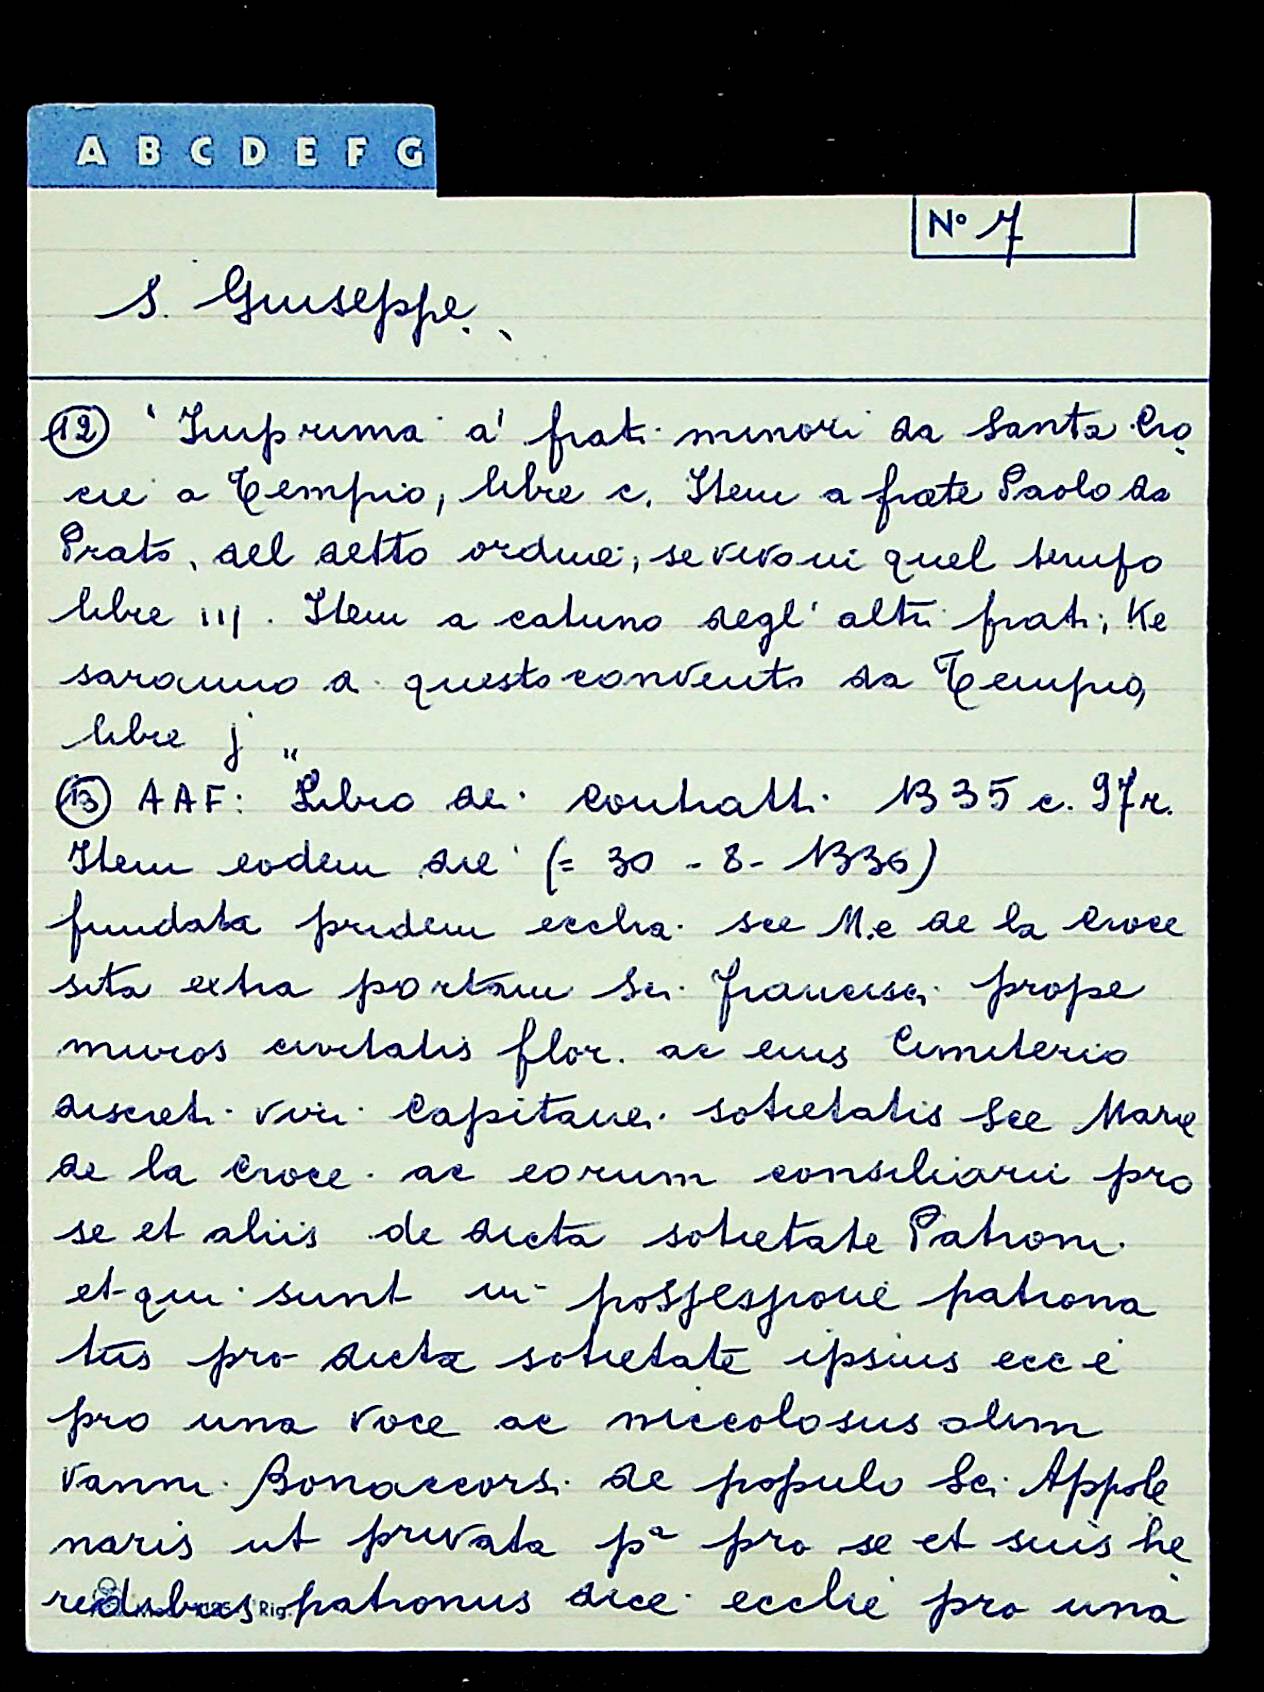 A B C D E F G
Nº 7
S. Giuseppe.
(12) "Imprima a' frati minori da Santa Cro
cie a Tempio, libre c. Item a frate Paolo da
Prato, del detto ordine, se vivo in quel tempo
libre iij. Item a catuno degl' altri frati, Ke
saranno a questo convento da Tempio,
libre j"
(13) AAF: Libro dei contratti 1335 c. 97r.
Item eodem die (= 30 - 8 - 1336)
fundata pridem ecclia sce M.e de la Croce
sita extra portam Sci Francisci prope
muros civitatis flor. ac eius Cimiterio
discreti viri Capitanei sotietatis Sce Marie
de la Croce ac eorum consiliarii pro
se et aliis de dicta sotietate Patroni
et qui sunt in possessione patrona
tus pro dicta sotietate ipsius ecc e
pro una voce ac niccolosus olim
Vanni Bonaccorsi de populo Sci Appole
naris ut privata pª pro se et suis he
redibus patronus dice ecclie pro una
Rig.